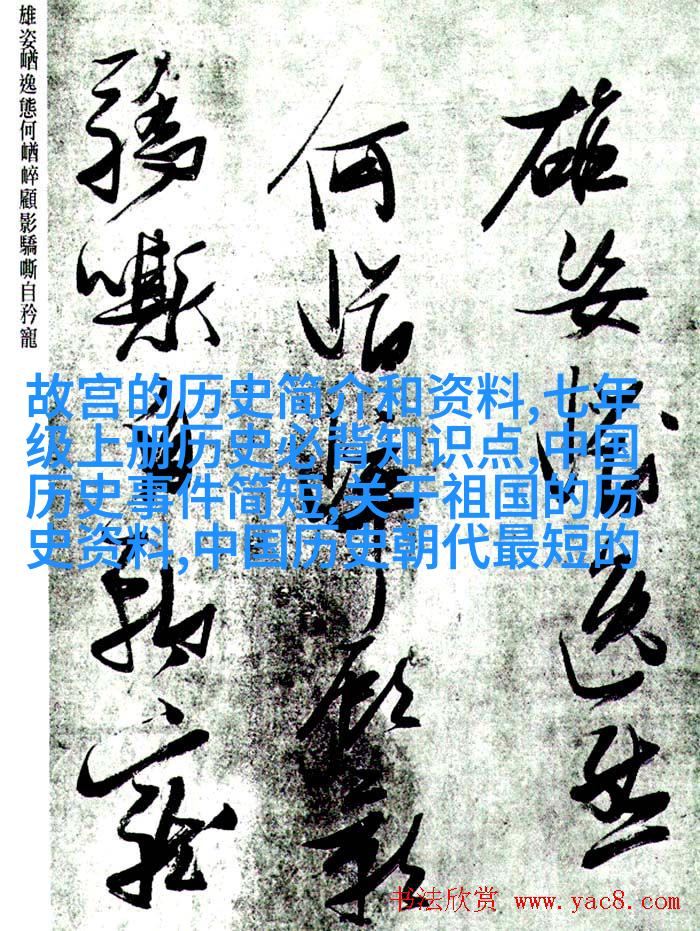 雄姿逸態
何崷顧影
驕嘶自矜寵
雄姿崷逸態何崷崪顧影驕嘶自矜寵
故宫的历史简介和资料,七年
级上册历史必背知识点,中国
历史事件简短,关于祖国的历
史资料,中国历史朝代最短的
书法欣赏 www.yac8.com